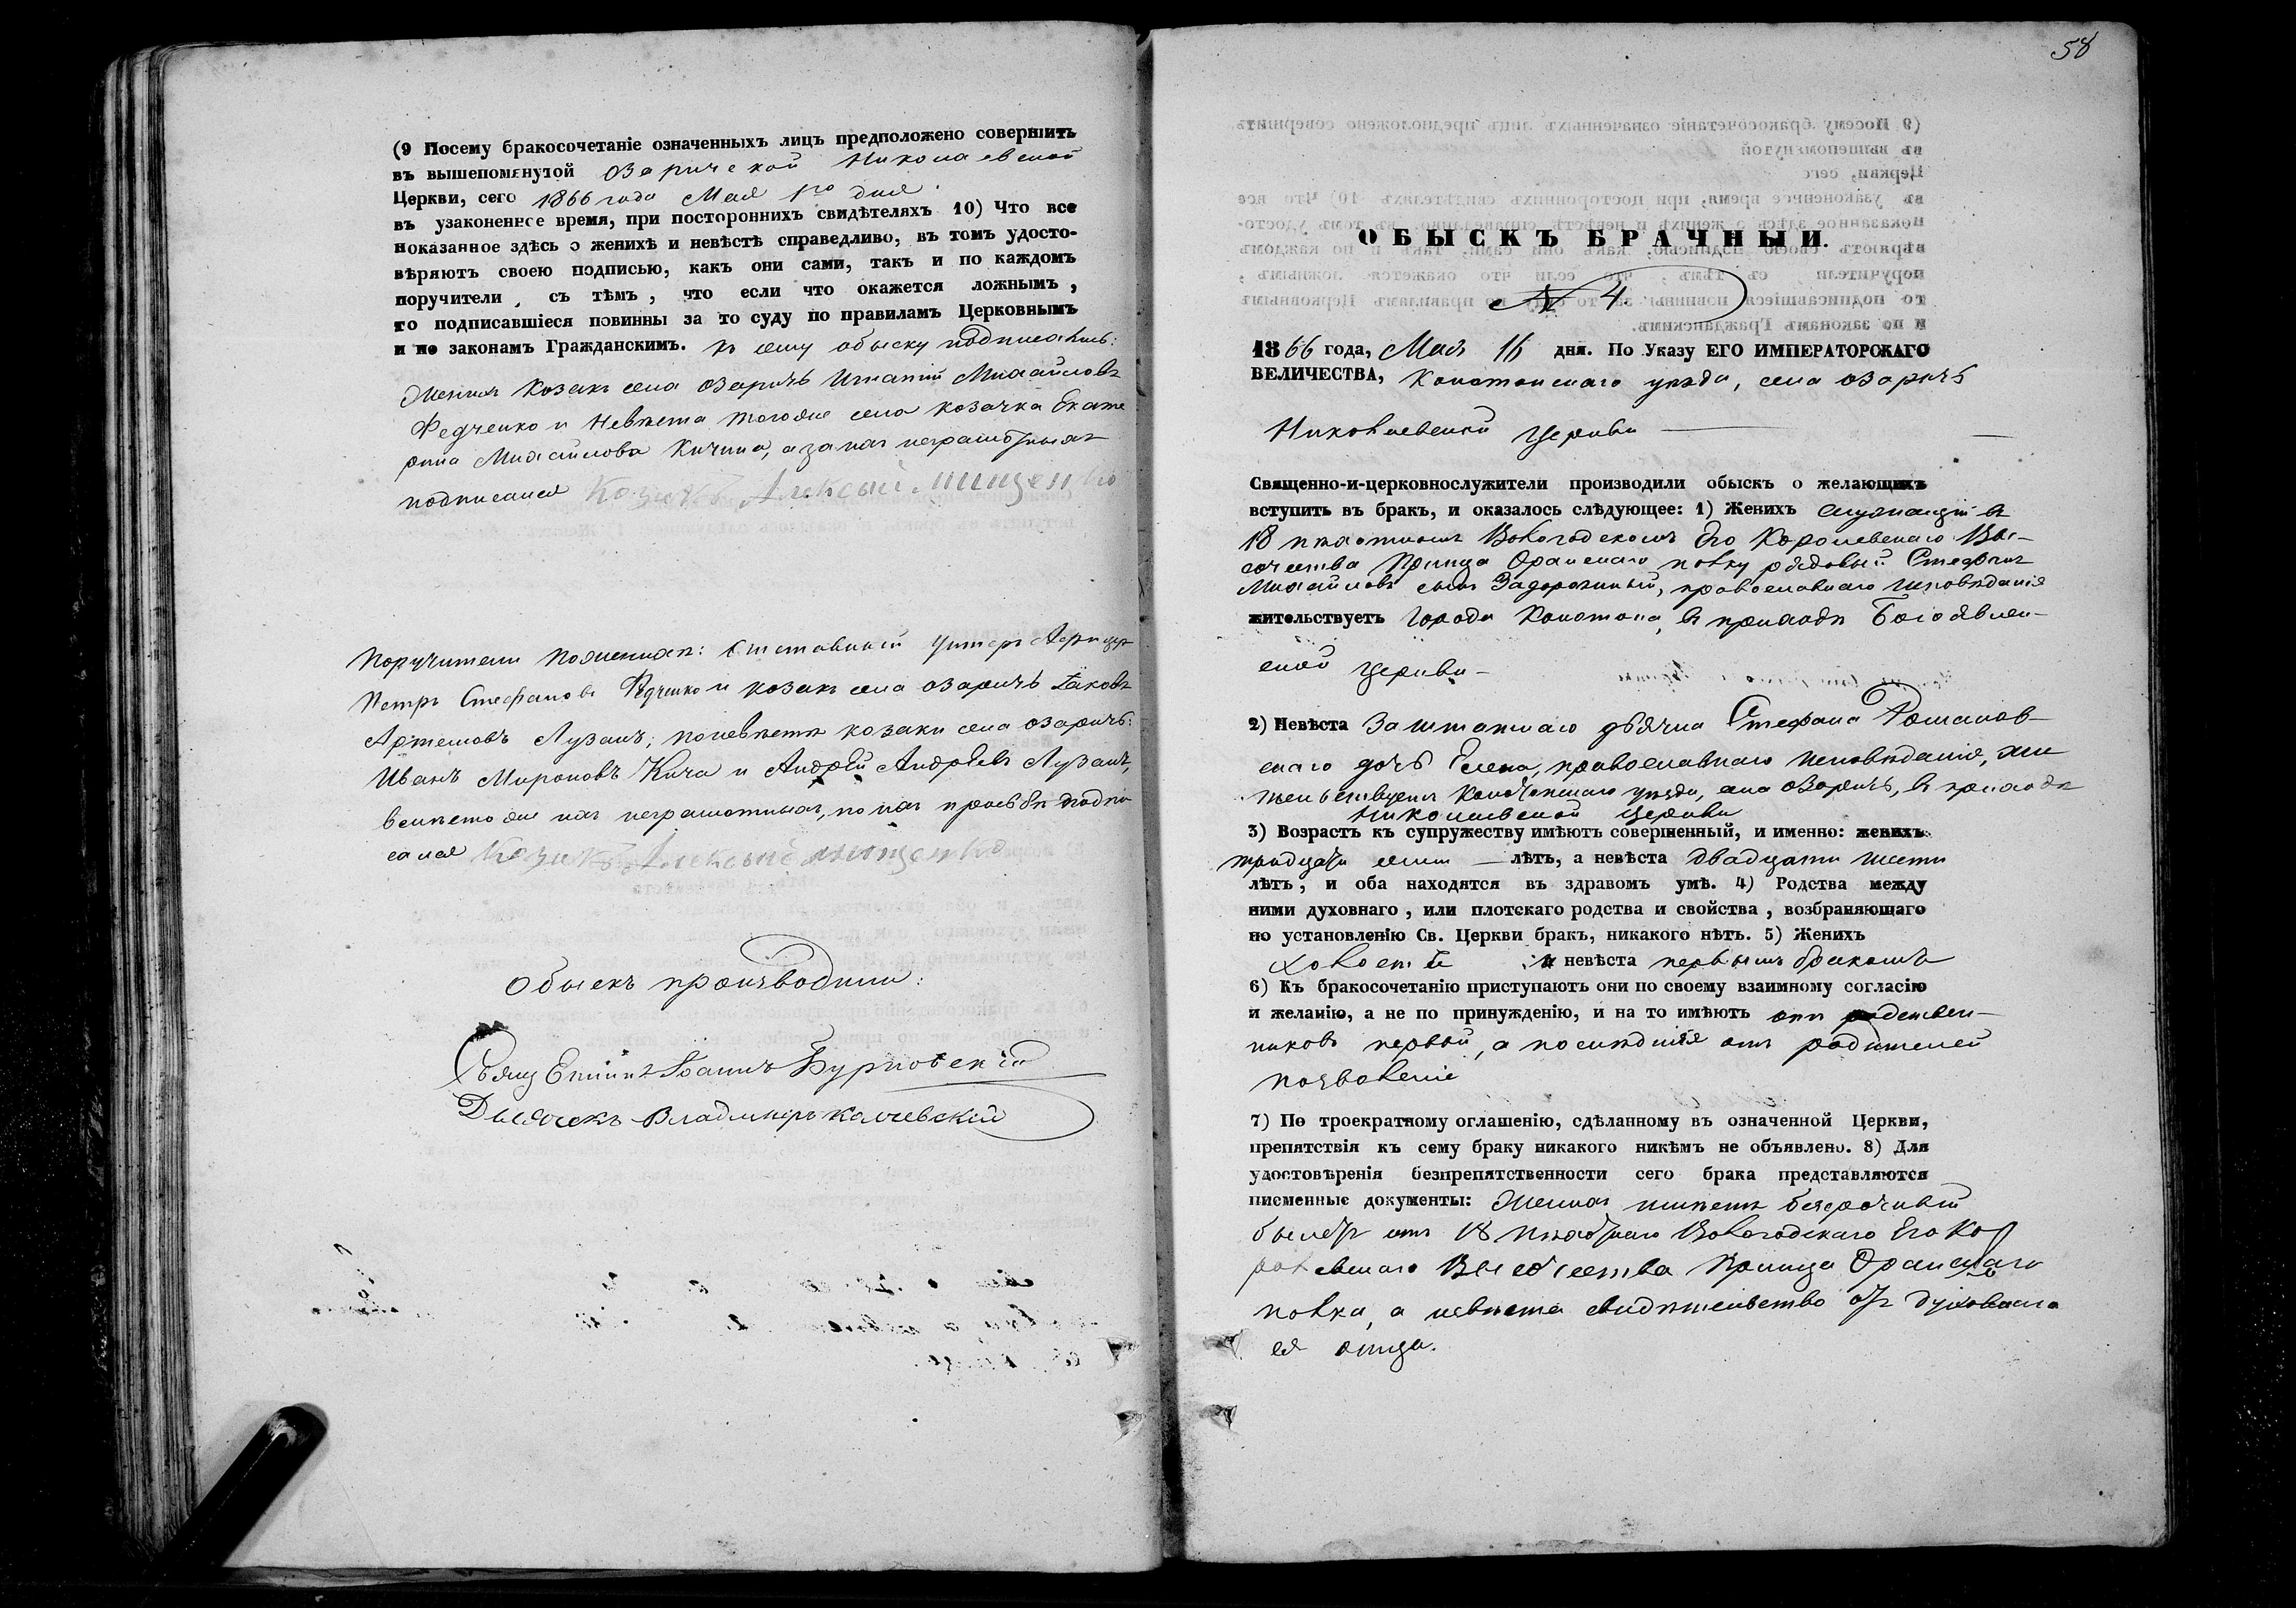 (9 Посему бракосочетаніе означенныхъ лицъ предположено совершить
въ вышепомянутой Озаричской Николаевской
Церкви, сего 1866 года Мая 1го дня.
въ узаконенное время, при постороннихъ свидѣтеляхъ 10) Что все
показанное здѣсь о женихѣ и невѣстѣ справедливо, въ томъ удосто-
вѣряютъ своею подписью, какъ они сами, такъ и по каждомъ
поручители, съ тѣмъ, что если что окажется ложнымъ,
то подписавшіеся повинны за то суду по правиламъ Церковнымъ
и по законамъ Гражданскимъ. Къ сему обыску подписались:
Женихъ козакъ села Озаричъ Игнатій Михайловъ
Федченко и Невѣста того же села козачка Екате
рина Михайлова Кичина, а за нихъ неграмотныхъ
подписался Козакъ Алексѣй Мищенко
Поручители По женихѣ: Отставной Унтеръ
Петръ Стефановъ Федченко и козакъ села Озаричъ Іаковъ
Артемовъ Лузанъ; по невѣстѣ козаки села Озаричъ:
Иванъ Мироновъ Кича и Андрей Андреевъ Лузанъ,
а за нихъ неграмотныхъ, по ихъ просьбѣ подпи
сался Козакъ Алексѣй Мищенко
Обыскъ производили:
Іоаннъ
Дьячекъ Владиміръ
58
ОБЫСКЪ БРАЧНЫЙ.
№ 4.
1866 года, Мая 16 дня. По Указу ЕГО ИМПЕРАТОРСКАГО
ВЕЛИЧЕСТВА, Конотопскаго уѣзда, села Озаричъ
Николаевской Церкви
Священно-и-церковнослужители производили обыскъ о желающихъ
вступить въ бракъ, и оказалось слѣдующее: 1) Женихъ служащій въ
18 пѣхотномъ Вологодскомъ Его Королевскаго Вы-
сочества Принца Оранскаго полку рядовый Стефанъ
Михайловъ сынъ Задорожный, православнаго исповѣданія
жительствуетъ города Конотопа, въ приходѣ Богоявлен-
ской Церкви
2) Невѣста Заштатнаго дьячка Стефана Романов-
скаго дочь Елена, православнаго исповѣданія, жи
тельствуетъ Конотопскаго уѣзда, села Озаричъ, въ приходѣ
Николаевской Церкви
3) Возрастъ къ супружеству имѣютъ совершенный, и именно: женихъ
тридцати семи лѣтъ, а невѣста двадцати шести
лѣтъ, и оба находятся въ здравомъ умѣ. 4) Родства между
ними духовнаго, или плотскаго родства и свойства, возбраняющаго
по установленію Св. Церкви бракъ, никакого нѣтъ. 5) Женихъ
холостъ и невѣста первымъ бракомъ
6) Къ бракосочетанію приступаютъ они по своему взаимному согласію
и желанію, а не по принужденію, и на то имѣютъ отъ родствен-
никовъ первый, а послѣдняя отъ родителей
позволеніе
7) По троекратному оглашенію, сдѣланному въ означенной Церкви,
препятствія къ сему браку никакого никѣмъ не объявлено. 8) Для
удостовѣренія безпрепятственности сего брака представляются
писменные документы: Женихъ имѣетъ безсрочный
билетъ отъ 18 пѣхотнаго Вологодскаго Его Ко
ролевскаго Высочества Принца Оранскаго
полка, а невѣста свидѣтельство отъ духовнаго
ея отца.